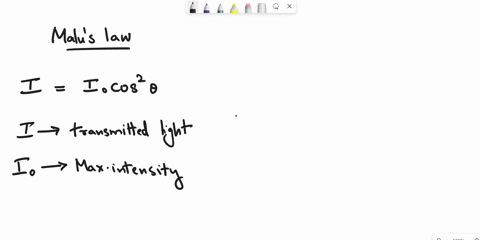 Malu's law
I = I₀ cos²θ
I → transmitted light
I₀ → Max. intensity